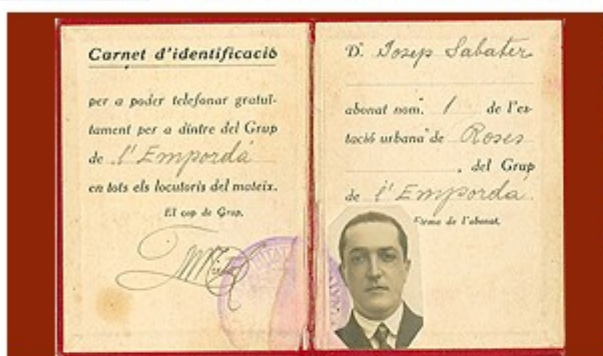 Carnet d'identificació
per a poder telefonar gratuï-
tament per a dintre del Grup
de l'Empordà
en tots els locutoris del mateix.
El cap de Grup,
D. Josep Sabater
abonat nom. 1 de l'es-
tació urbana de Roses
, del Grup
de l'Empordà.
Firma de l'abonat,